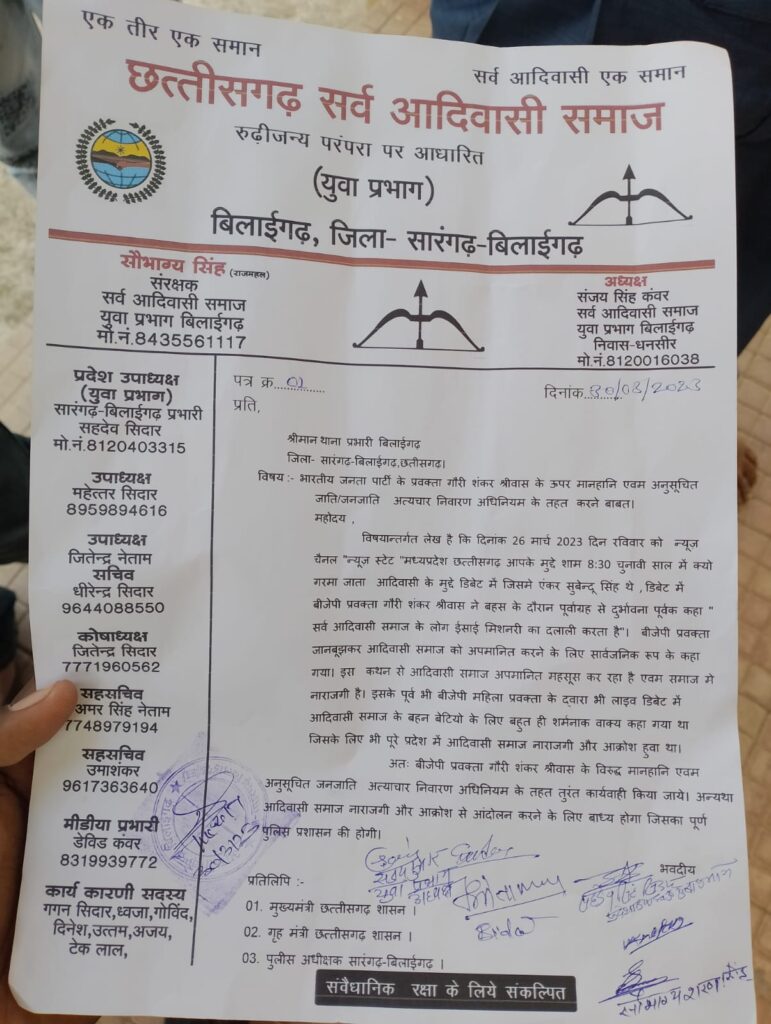 एक तीर एक समान
सर्व आदिवासी एक समान
छत्तीसगढ़ सर्व आदिवासी समाज
रुढ़ीजन्य परंपरा पर आधारित
(युवा प्रभाग)
बिलाईगढ़, जिला- सारंगढ़-बिलाईगढ़
सौभाग्य सिंह (राजमहल)
संरक्षक
सर्व आदिवासी समाज
युवा प्रभाग बिलाईगढ़
मो.नं.8435561117
अध्यक्ष
संजय सिंह कंवर
सर्व आदिवासी समाज
युवा प्रभाग बिलाईगढ़
निवास-धनसीर
मो.नं.8120016038
प्रदेश उपाध्यक्ष
(युवा प्रभाग)
सारंगढ़-बिलाईगढ़ प्रभारी
सहदेव सिदार
मो.नं.8120403315
उपाध्यक्ष
महेत्तर सिदार
8959894616
उपाध्यक्ष
जितेन्द्र नेताम
सचिव
धीरेन्द्र सिदार
9644088550
कोषाध्यक्ष
जितेन्द्र सिदार
7771960562
सहसचिव
अमर सिंह नेताम
7748979194
सहसचिव
उमाशंकर
9617363640
मीडीया प्रभारी
डेविड कंवर
8319939772
कार्य कारणी सदस्य
गगन सिदार,ध्वजा,गोविंद,
दिनेश,उत्तम,अजय,
टेक लाल,
पत्र क्र....01....
दिनांक..30/03/2023
प्रति,
श्रीमान थाना प्रभारी बिलाईगढ़
जिला- सारंगढ़-बिलाईगढ़,छतीसगढ़।
विषय :- भारतीय जनता पार्टी के प्रवक्ता गौरी शंकर श्रीवास के ऊपर मानहानि एवम अनुसूचित
जाति/जनजाति अत्यचार निवारण अधिनियम के तहत करने बाबत।
महोदय ,
विषयान्तर्गत लेख है कि दिनांक 26 मार्च 2023 दिन रविवार को न्यूज़
चैनल "न्यूज़ स्टेट "मध्यप्रदेश छत्तीसगढ़ आपके मुद्दे शाम 8:30 चुनावी साल में क्यो
गरमा जाता आदिवासी के मुद्दे डिबेट में जिसमे एंकर सुबेन्दू सिंह थे , डिबेट में
बीजेपी प्रवक्ता गौरी शंकर श्रीवास ने बहस के दौरान पूर्वाग्रह से दुर्भावना पूर्वक कहा "
सर्व आदिवासी समाज के लोग ईसाई मिशनरी का दलाली करता है"। बीजेपी प्रवक्ता
जानबूझकर आदिवासी समाज को अपमानित करने के लिए सार्वजनिक रूप के कहा
गया। इस कथन से आदिवासी समाज अपमानित महसूस कर रहा है एवम समाज मे
नाराजगी है। इसके पूर्व भी बीजेपी महिला प्रवक्ता के द्वारा भी लाइव डिबेट में
आदिवासी समाज के बहन बेटियो के लिए बहुत ही शर्मनाक वाक्य कहा गया था
जिसके लिए भी पूरे प्रदेश में आदिवासी समाज नाराजगी और आक्रोश हुवा था।
अतः बीजेपी प्रवक्ता गौरी शंकर श्रीवास के विरुद्ध मानहानि एवम
अनुसूचित जनजाति अत्याचार निवारण अधिनियम के तहत तुरंत कार्यवाही किया जाये। अन्यथा
आदिवासी समाज नाराजगी और आक्रोश से आंदोलन करने के लिए बाध्य होगा जिसका पूर्ण
पुलिस प्रशासन की होगी।
भवदीय
युवा प्रभाग
अध्यक्ष
प्रतिलिपि :-
01. मुख्यमंत्री छत्तीसगढ़ शासन ।
02. गृह मंत्री छत्तीसगढ़ शासन ।
03. पुलीस अधीक्षक सारंगढ़-बिलाईगढ़ ।
संवैधानिक रक्षा के लिये संकल्पित